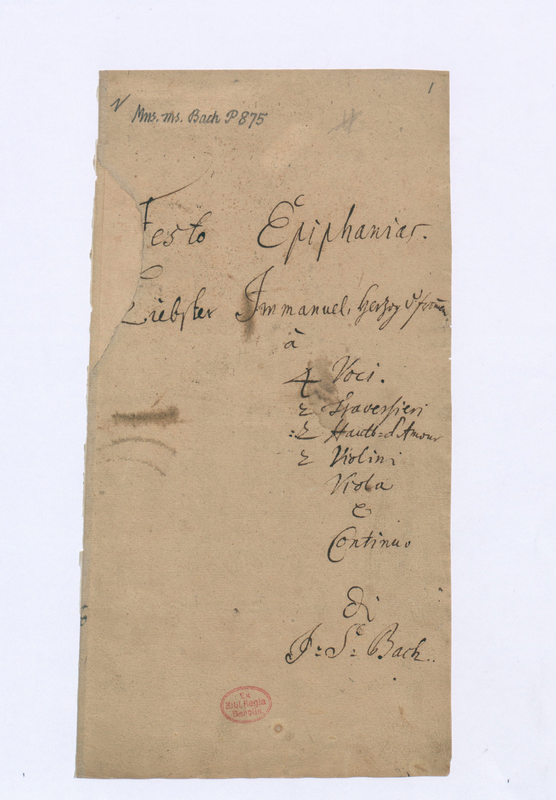 1
N
Mus. ms. Bach P 875
Festo Epiphanias.
Liebster Immanuel, Herzog d. from̅en
à
4 Voci.
2 Traversieri
2 Hautb: d'Amour
2 Violini
Viola
e
Continuo
di
J: S: Bach.
Ex
Bibl. Regia
Berolin.